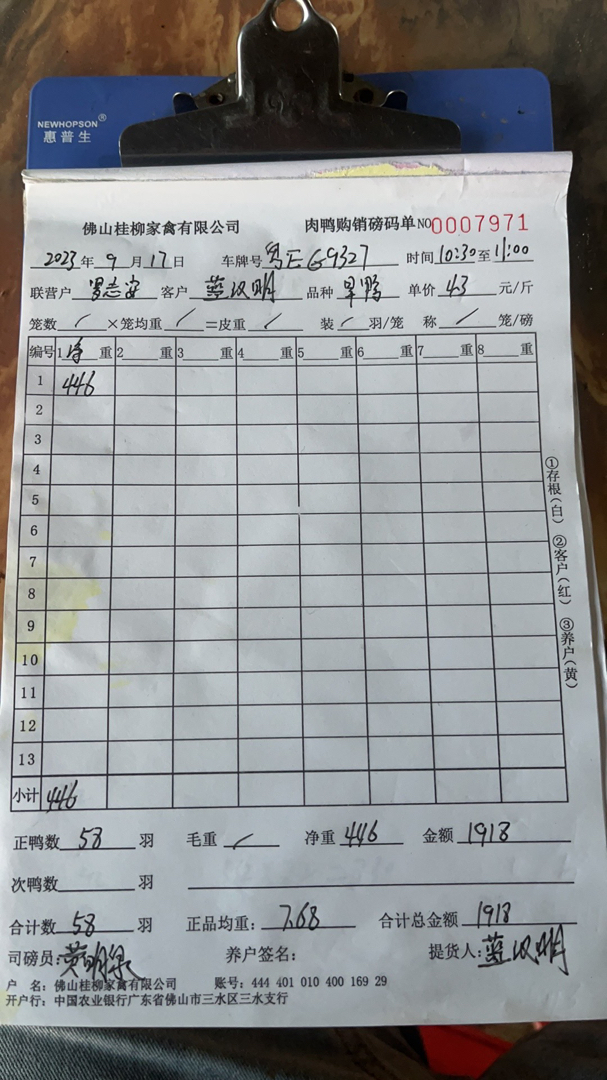 NEWHOPSON®
惠普生
佛山桂柳家禽有限公司 肉鸭购销磅码单 NO 0007971
2023年 9月 17日 车牌号 粤E G9327 时间 10:30 至 11:00
联营户 罗志安 客户 蓝汉明 品种 旱鸭 单价 4.3 元/斤
笼数 / ×笼均重 / =皮重 / 装 / 羽/笼 称 / 笼/磅
编号 1 净 重 2 重 3 重 4 重 5 重 6 重 7 重 8 重
1 446
2
3
4
5
6
7
8
9
10
11
12
13
小计 446
①存根(白) ②客户(红) ③养户(黄)
正鸭数 58 羽 毛重 / 净重 446 金额 1918
次鸭数 羽
合计数 58 羽 正品均重: 7.68 合计总金额 1918
司磅员: 黄明 养户签名: 提货人: 蓝汉明
户 名: 佛山桂柳家禽有限公司 账号: 444 401 010 400 169 29
开户行: 中国农业银行广东省佛山市三水区三水支行